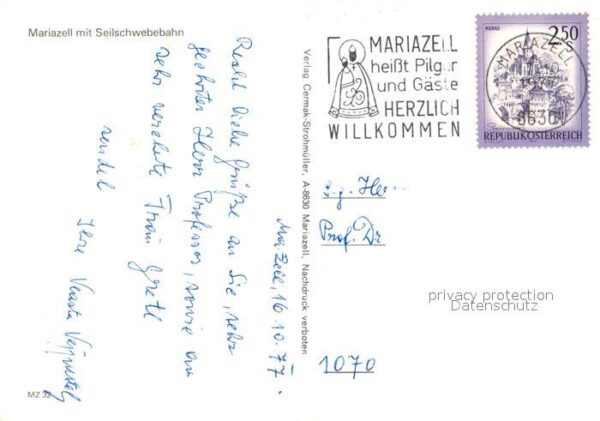 Mariazell mit Seilschwebebahn
Ma. Zell, 16.10.77.
Recht liebe Grüße an Sie, sehr
geehrter Herr Professor, sowie an
sehr verehrte Frau Gretl
sendet
Ihre
MZ 32
Verlag Cermak-Strohmüller, A-8630 Mariazell, Nachdruck verboten
MARIAZELL
heißt Pilger
und Gäste
HERZLICH
WILLKOMMEN
MURAU
2.50
REPUBLIK ÖSTERREICH
MARIAZELL
8630
s.g. Herr
Prof. Dr
1070
privacy protection
Datenschutz